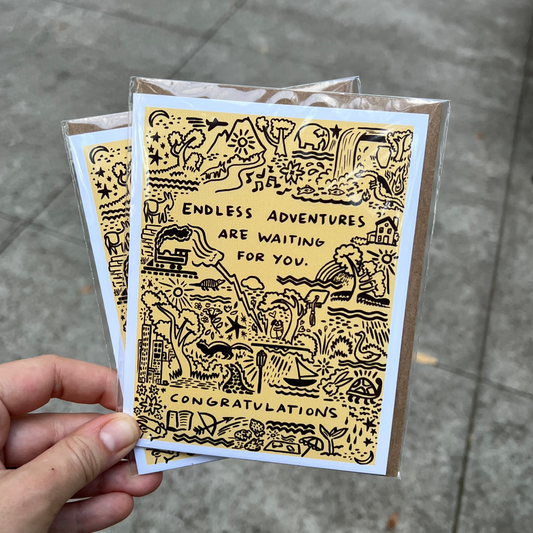 ENDLESS ADVENTURES
ARE WAITING
FOR YOU.
CONGRATULATIONS